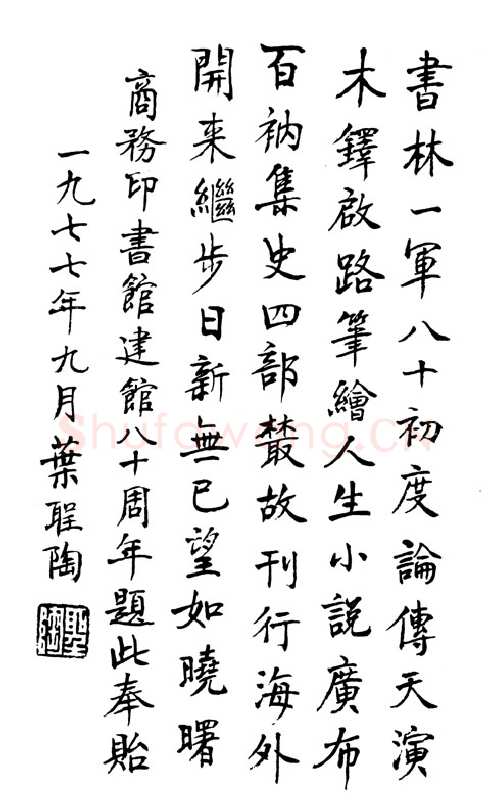 書林一軍八十初度論傳天演
木鐸啟路筆繪人生小説廣布
百衲集史四部叢故刊行海外
開来繼步日新無已望如曉曙
商務印書館建館八十周年題此奉貽
一九七七年九月葉聖陶
聖陶
Shufawang.CN